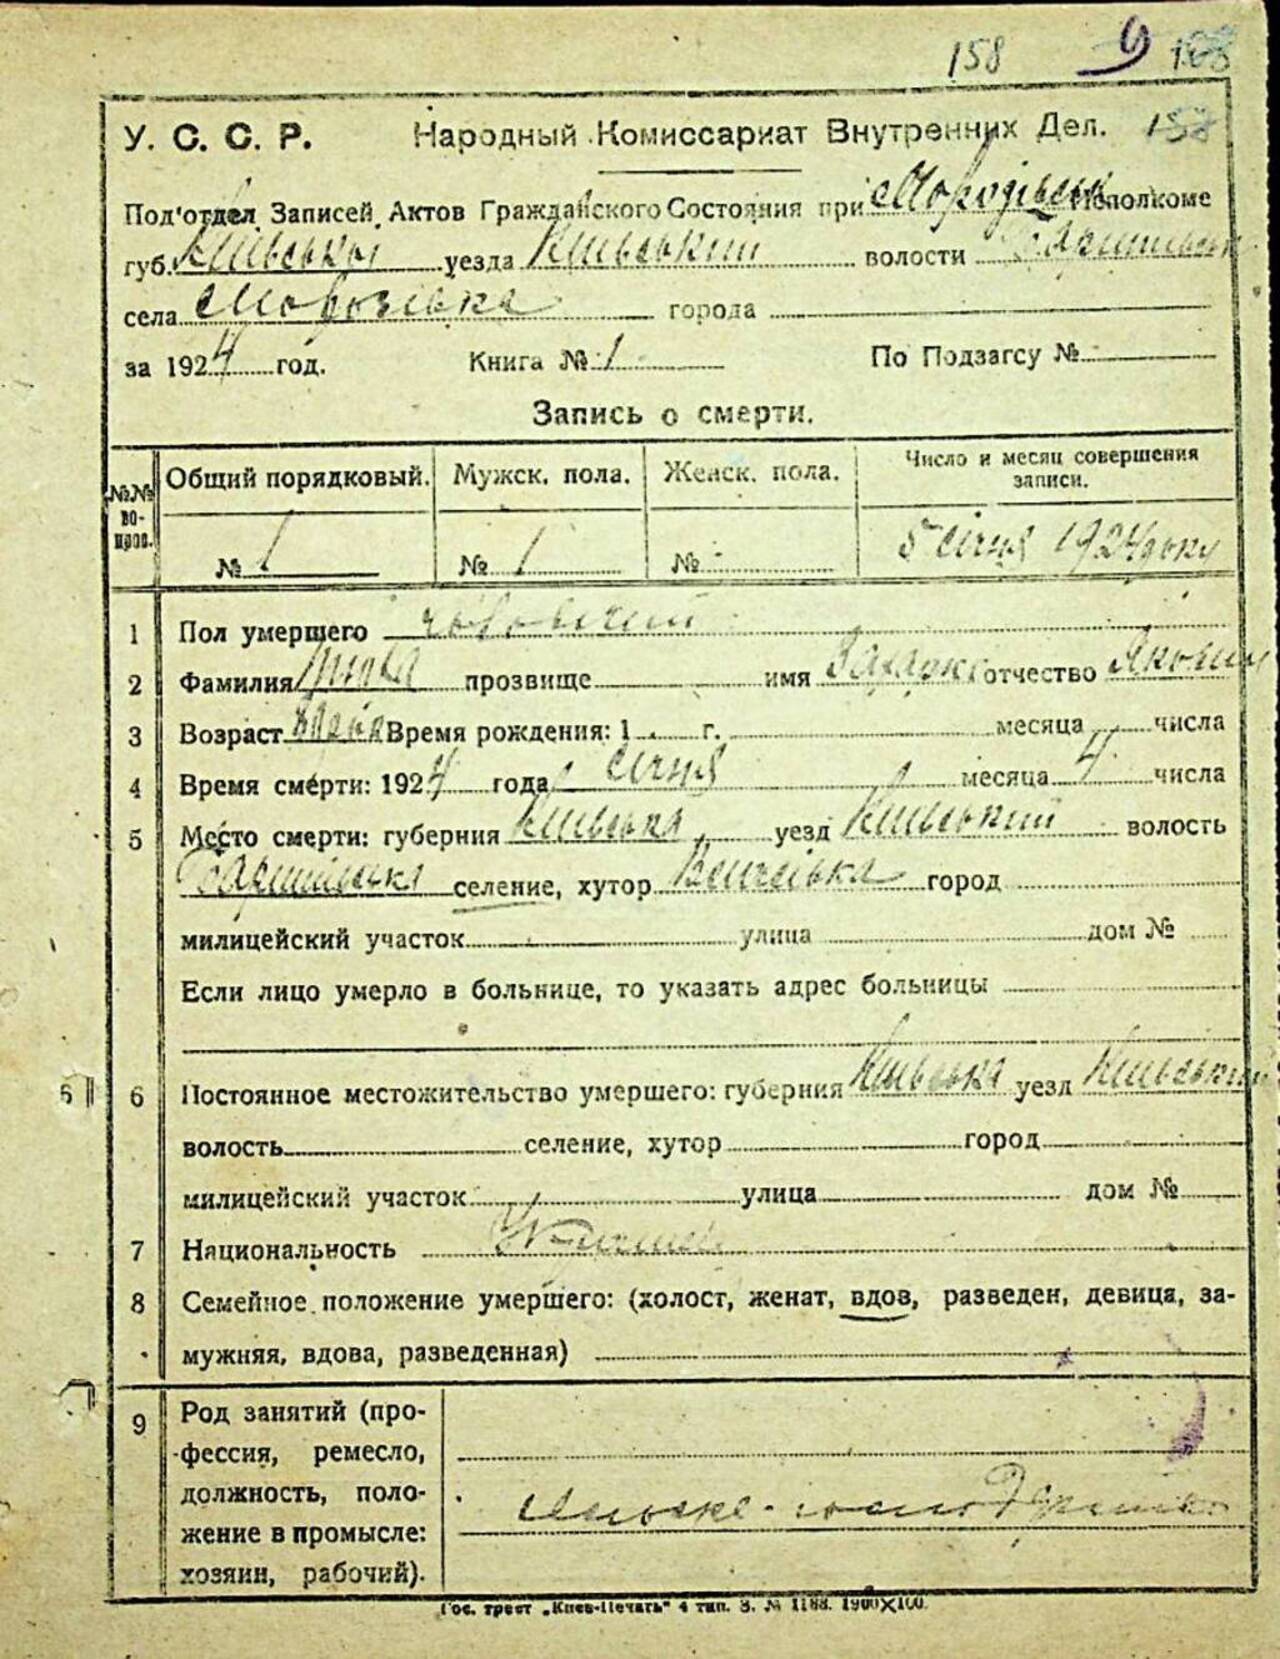 158 9
У. С. С. Р. Народный Комиссариат Внутренних Дел. 158
Под'отдел Записей Актов Гражданского Состояния при Исполкоме
губ. Київської уезда Київський волости
села Морозівка города
за 1924 год. Книга № 1 По Подзагсу №
Запись о смерти.
№№ вопров. Общий порядковый. Мужск. пола. Женск. пола. Число и месяц совершения записи.
№ 1 № 1 № - 5 січня 1924 року
1 Пол умершего чоловічий
2 Фамилия прозвище имя Захарко отчество
3 Возраст Время рождения: 1 г. месяца числа
4 Время смерти: 1924 года січня месяца 4 числа
5 Место смерти: губерния Київська уезд Київський волость
Баришівська селение, хутор город
милицейский участок улица дом №
Если лицо умерло в больнице, то указать адрес больницы
6 Постоянное местожительство умершего: губерния Київська уезд Київський
волость селение, хутор город
милицейский участок улица дом №
7 Национальность
8 Семейное положение умершего: (холост, женат, вдов, разведен, девица, за-
мужняя, вдова, разведенная)
9 Род занятий (про-
фессия, ремесло,
должность, поло-
жение в промысле:
хозяин, рабочий).
Гос. трест „Киев-Печать" 4 тип. З. № 1188. 1900×100.